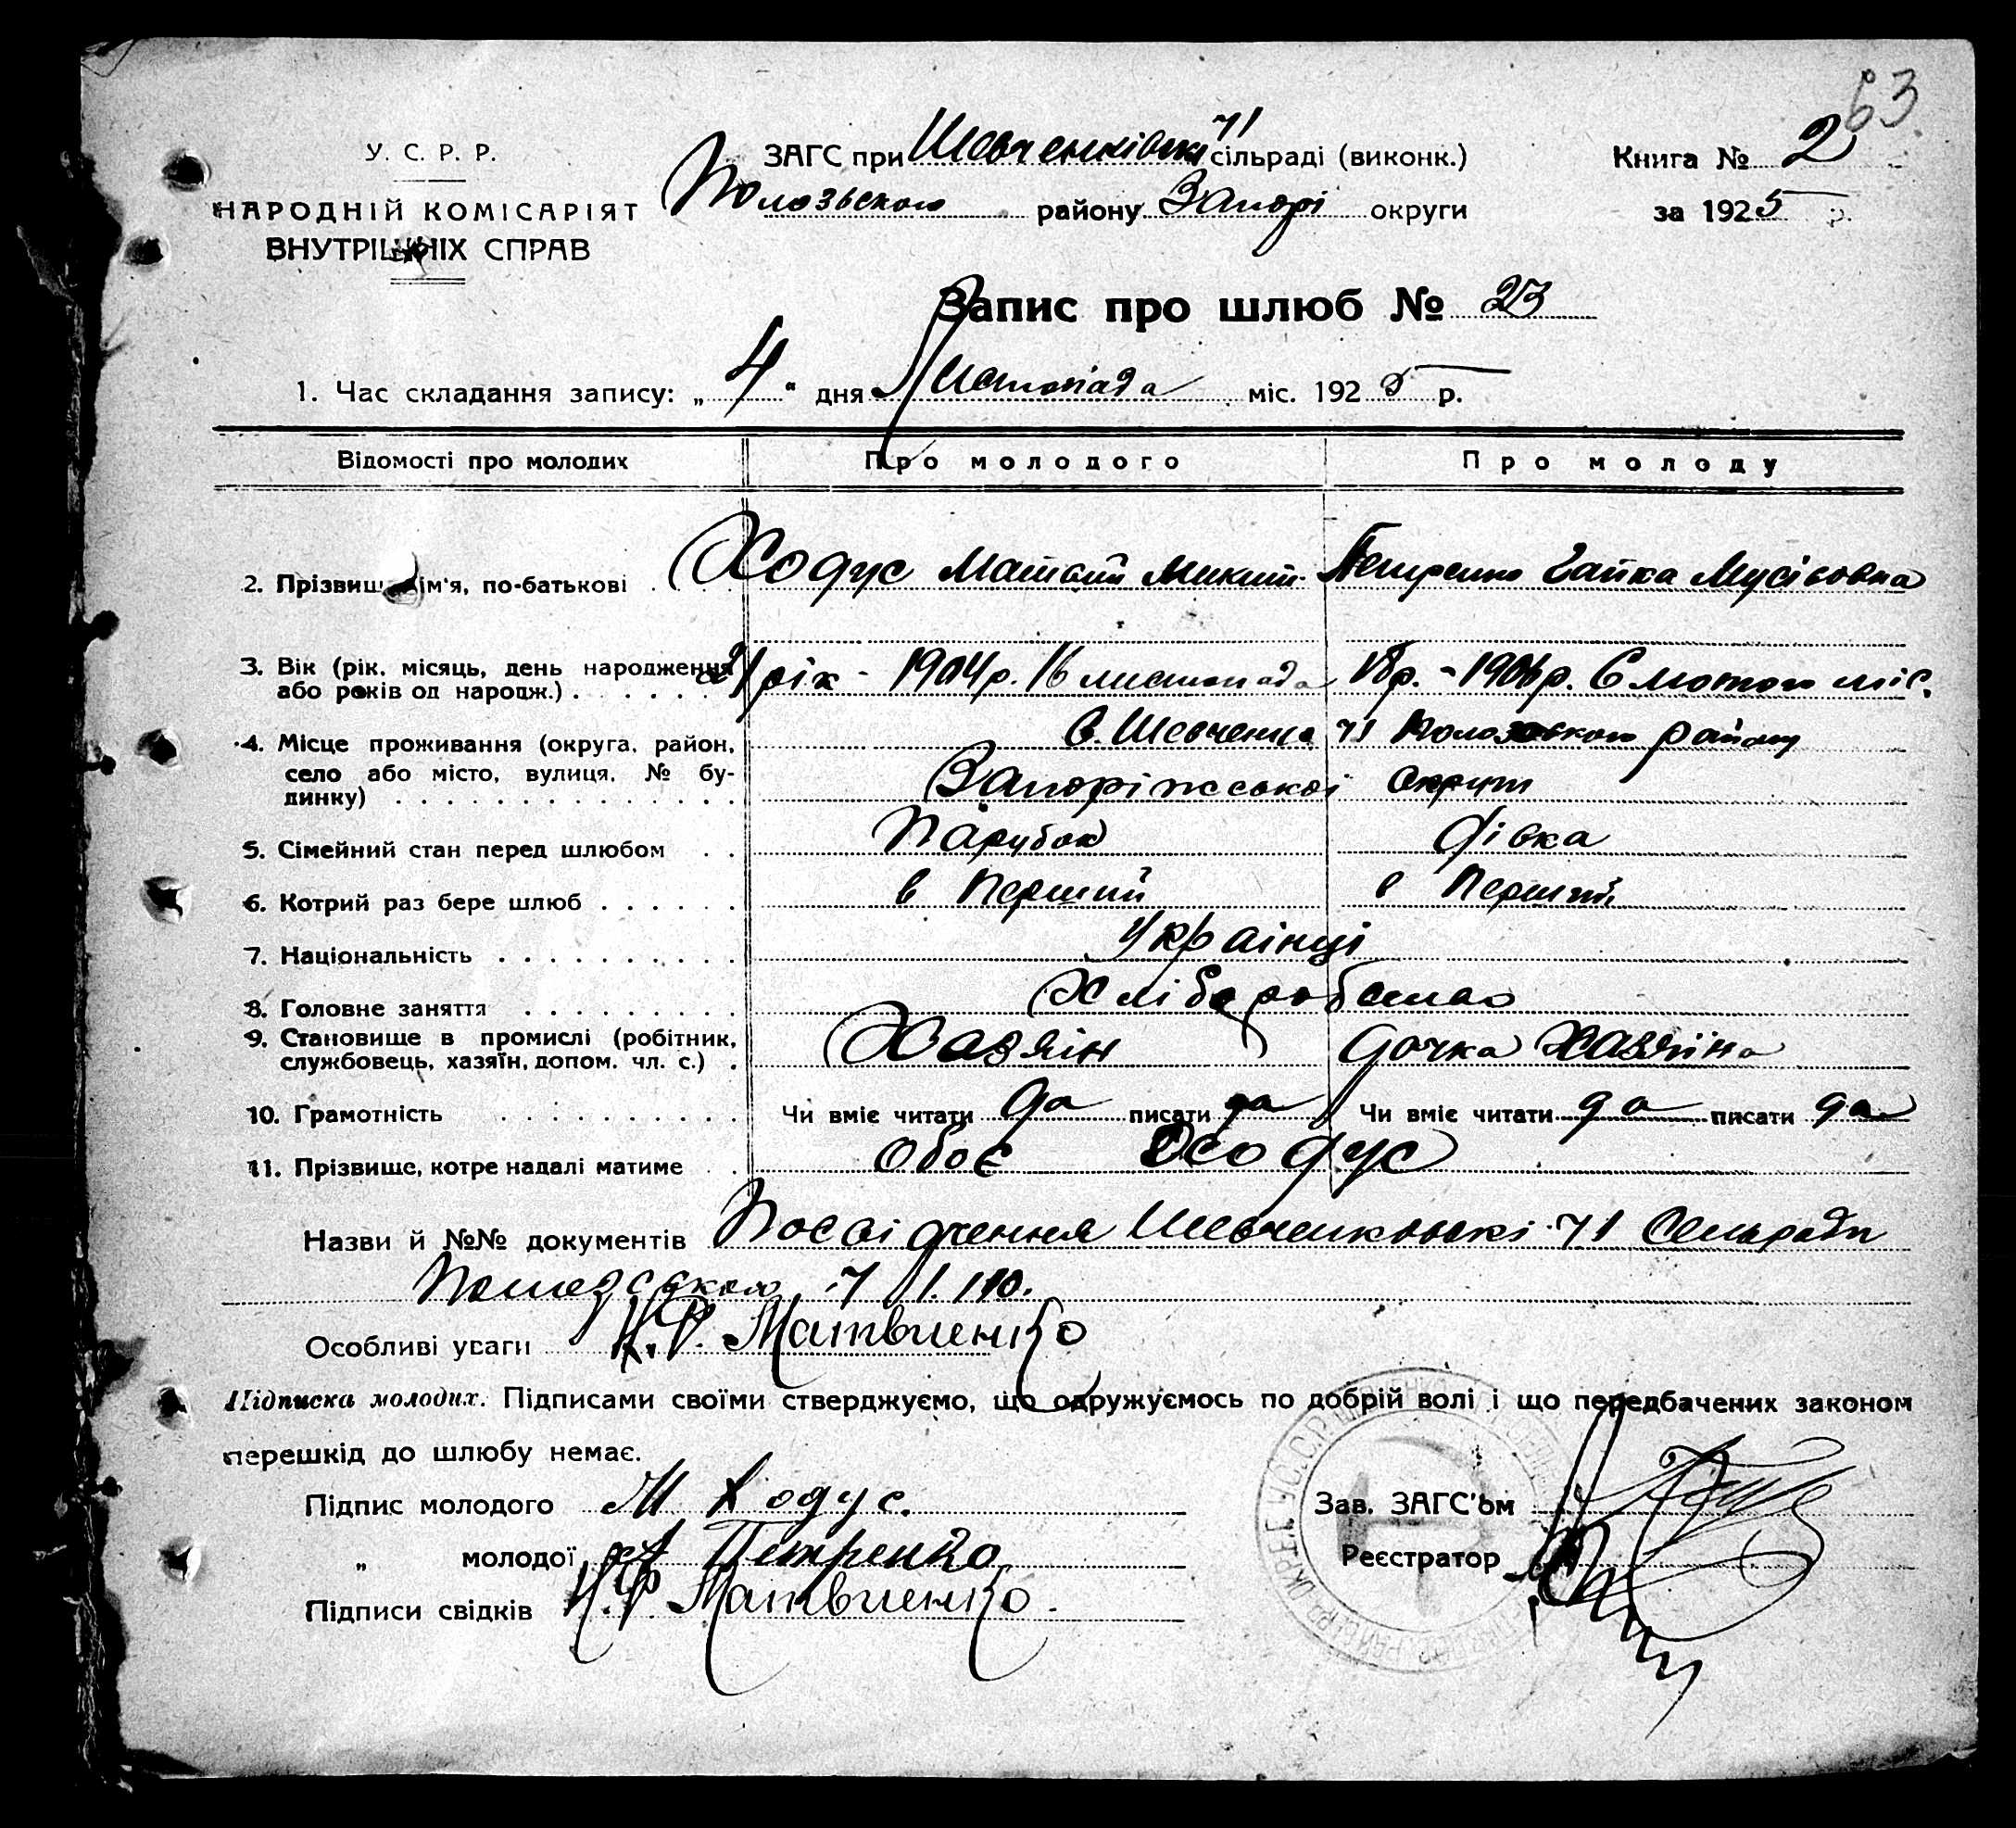 63
У. С. Р. Р.
НАРОДНІЙ КОМІСАРІЯТ
ВНУТРІШНІХ СПРАВ
ЗАГС при Шевченківські 71 сільраді (виконк.)
Полозьского району Запорі округи
Книга № 2
за 1925 р.
Запис про шлюб № 23
1. Час складання запису: „ 4 “ дня Листопада міс. 1925 р.
Відомості про молодих Про молодого Про молоду
2. Прізвище, ім'я, по-батькові Ходус Матвій Микит. Петренко Гапка Мусіювна
3. Вік (рік, місяць, день народження 21 рік - 1904 р. 16 листопада 18 р. - 6 Лютого міс.
або років од народж.)
4. Місце проживання (округа, район, С. Шевченка 71 Полозовского району
село або місто, вулиця, № бу- Запоріжської округи
динку)
5. Сімейний стан перед шлюбом Парубок дівка
6. Котрий раз бере шлюб в Перший в Перший
7. Національність Українці
8. Головне заняття Хліборобство
9. Становище в промислі (робітник, Хазяін дочка Хазяіна
службовець, хазяїн, допом. чл. с.)
10. Грамотність Чи вміє читати да писати да Чи вміє читати да писати да
11. Прізвище, котре надалі матиме Обоє Ходус
Назви й №№ документів Посвідчення Шевченковскі 71 Сельради
71
Особливі уваги Матвиенко
Підписка молодих. Підписами своїми стверджуємо, що одружуємось по добрій волі і що передбачених законом
перешкід до шлюбу немає.
Підпис молодого М Ходус.
„ молодої Петренко
Підписи свідків Матвиенко.
Зав. ЗАГС'ом
Реєстратор